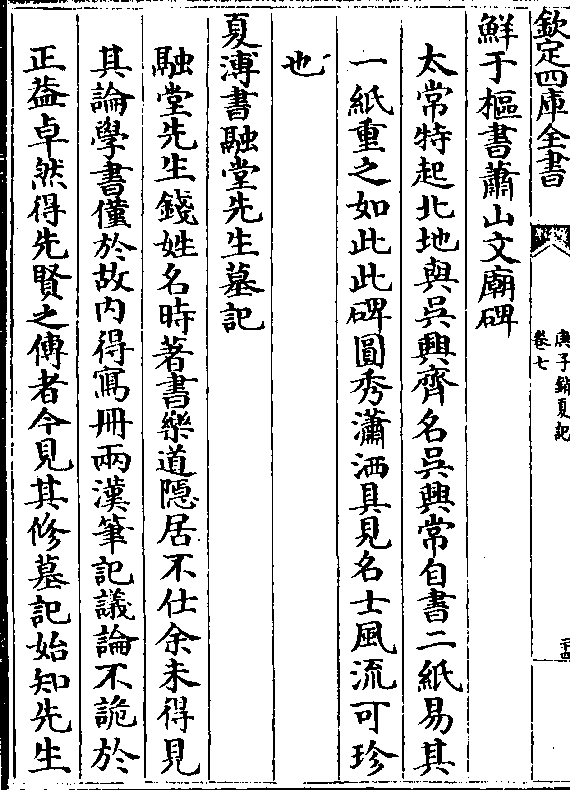 欽定四庫全書
庚子銷夏記
卷七
二十四
鮮于樞書蕭山文廟碑
太常特起北地與吳興齊名吳興常自書二紙易其
一紙重之如此此碑圓秀瀟洒具見名士風流可珍
也
夏溥書融堂先生墓記
融堂先生錢姓名時著書樂道隱居不仕余未得見
其論學書僅於故內得寫冊兩漢筆記議論不詭於
正葢卓然得先賢之傳者今見其修墓記始知先生